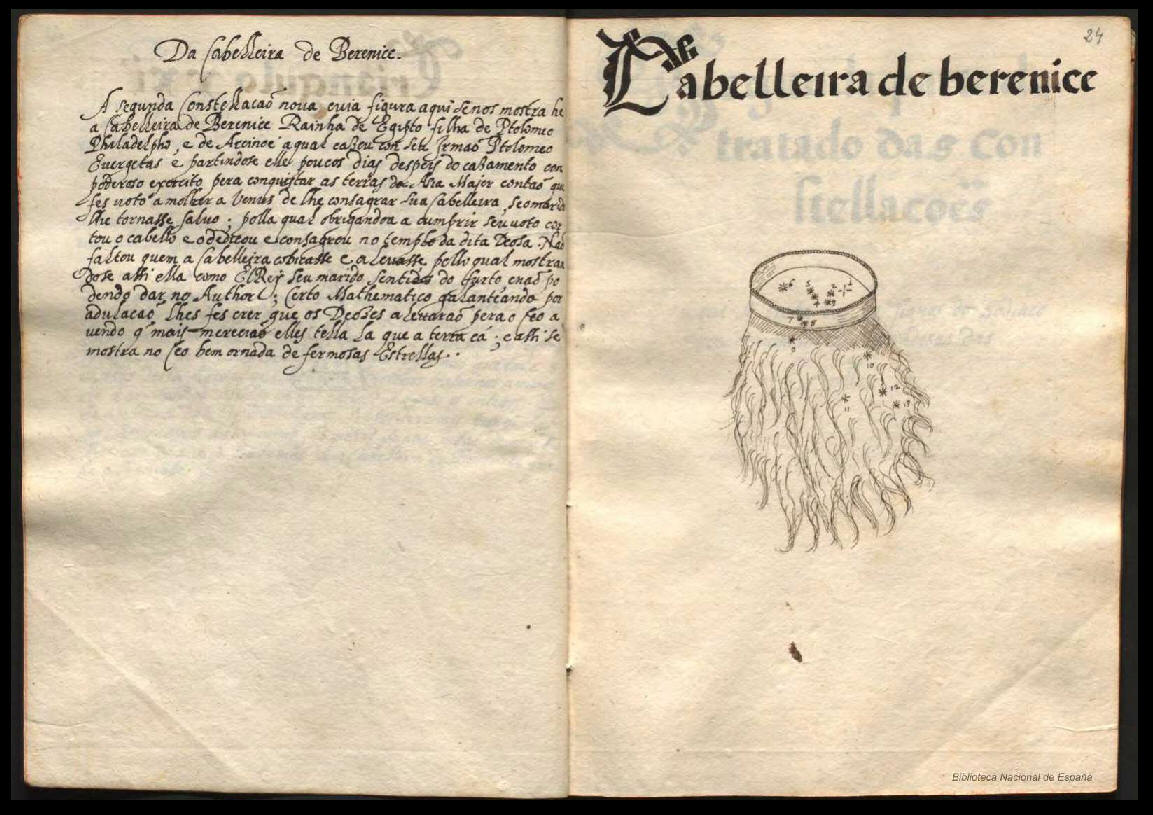 Da Cabelleira de Berenice.
A segunda Constellacaõ noua cuia figura aqui se nos mostra he
a Cabelleira de Berenice Rainha de Egipto filha de Ptolomeo
Philadelpho, e de Arcinoe a qual cazou con seu Irmaõ Ptolomeo
Euergetas e partindose elle poucos dias despois do cazamento con
poderoso exercito pera conquistar as terras da Asia Major contaõ que
fes voto a molher a Venus de lhe consagrar sua Cabelleira, se o marido
lhe tornasse saluo; polla qual obrigandoa a cumprir seu voto cor
tou o cabello e o dedicou e consagrou no templo da dita Deosa. Naõ
faltou quem a Cabelleira cobicasse e a leuasse pello qual mostran
dose assi ella como ElRej seu marido sentidos do furto e naõ po
dendo dar no Author; Certo Mathematico galanteando por
adulacaõ lhes fes crer que os Deozes a leuaraõ pera o Ceo a
uendo q̃ mais mereciaõ elles tella la que a terra cá; e assi se
mostra no Ceo bem ornada de fermosas Estrellas.
24
Cabelleira de berenice
tratado das Con
stellacoẽs
7
8
9
11
12
13
Biblioteca Nacional de España